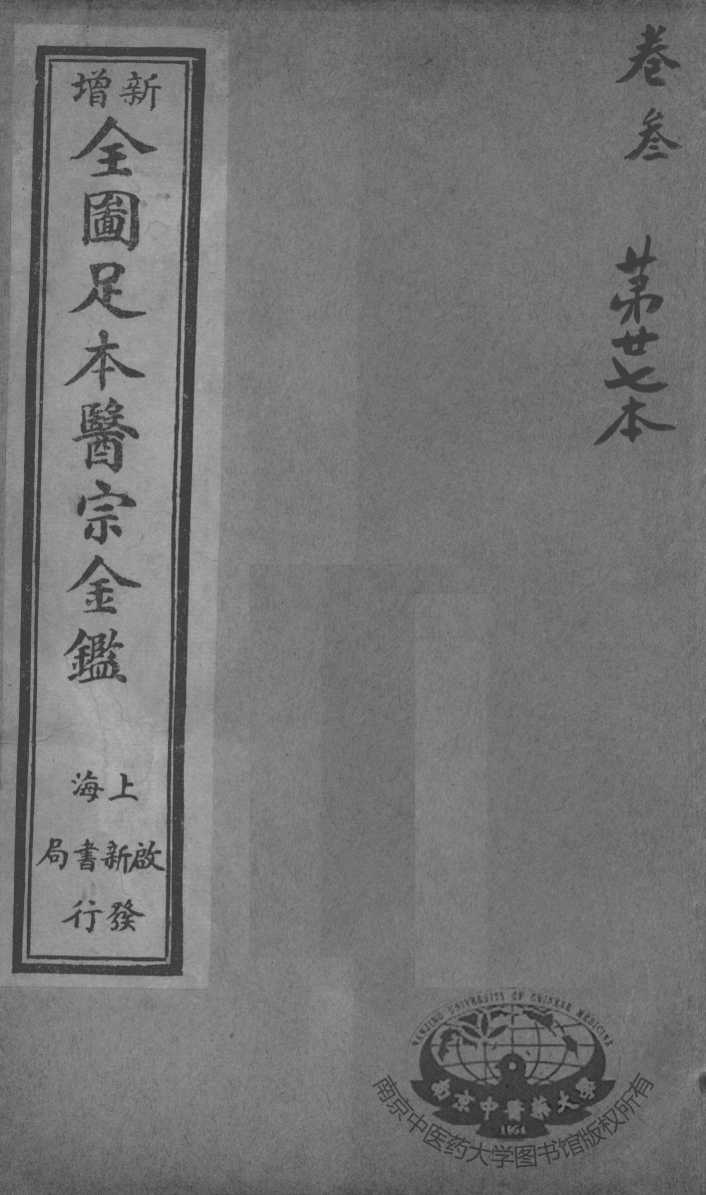 卷叁
第廿七本
新增
全圖足本醫宗金鑑
上海
啟新書局
發行
NANJING UNIVERSITY OF CHINESE MEDICINE
南京中醫藥大學
1954
南京中医药大学图书馆版权所有